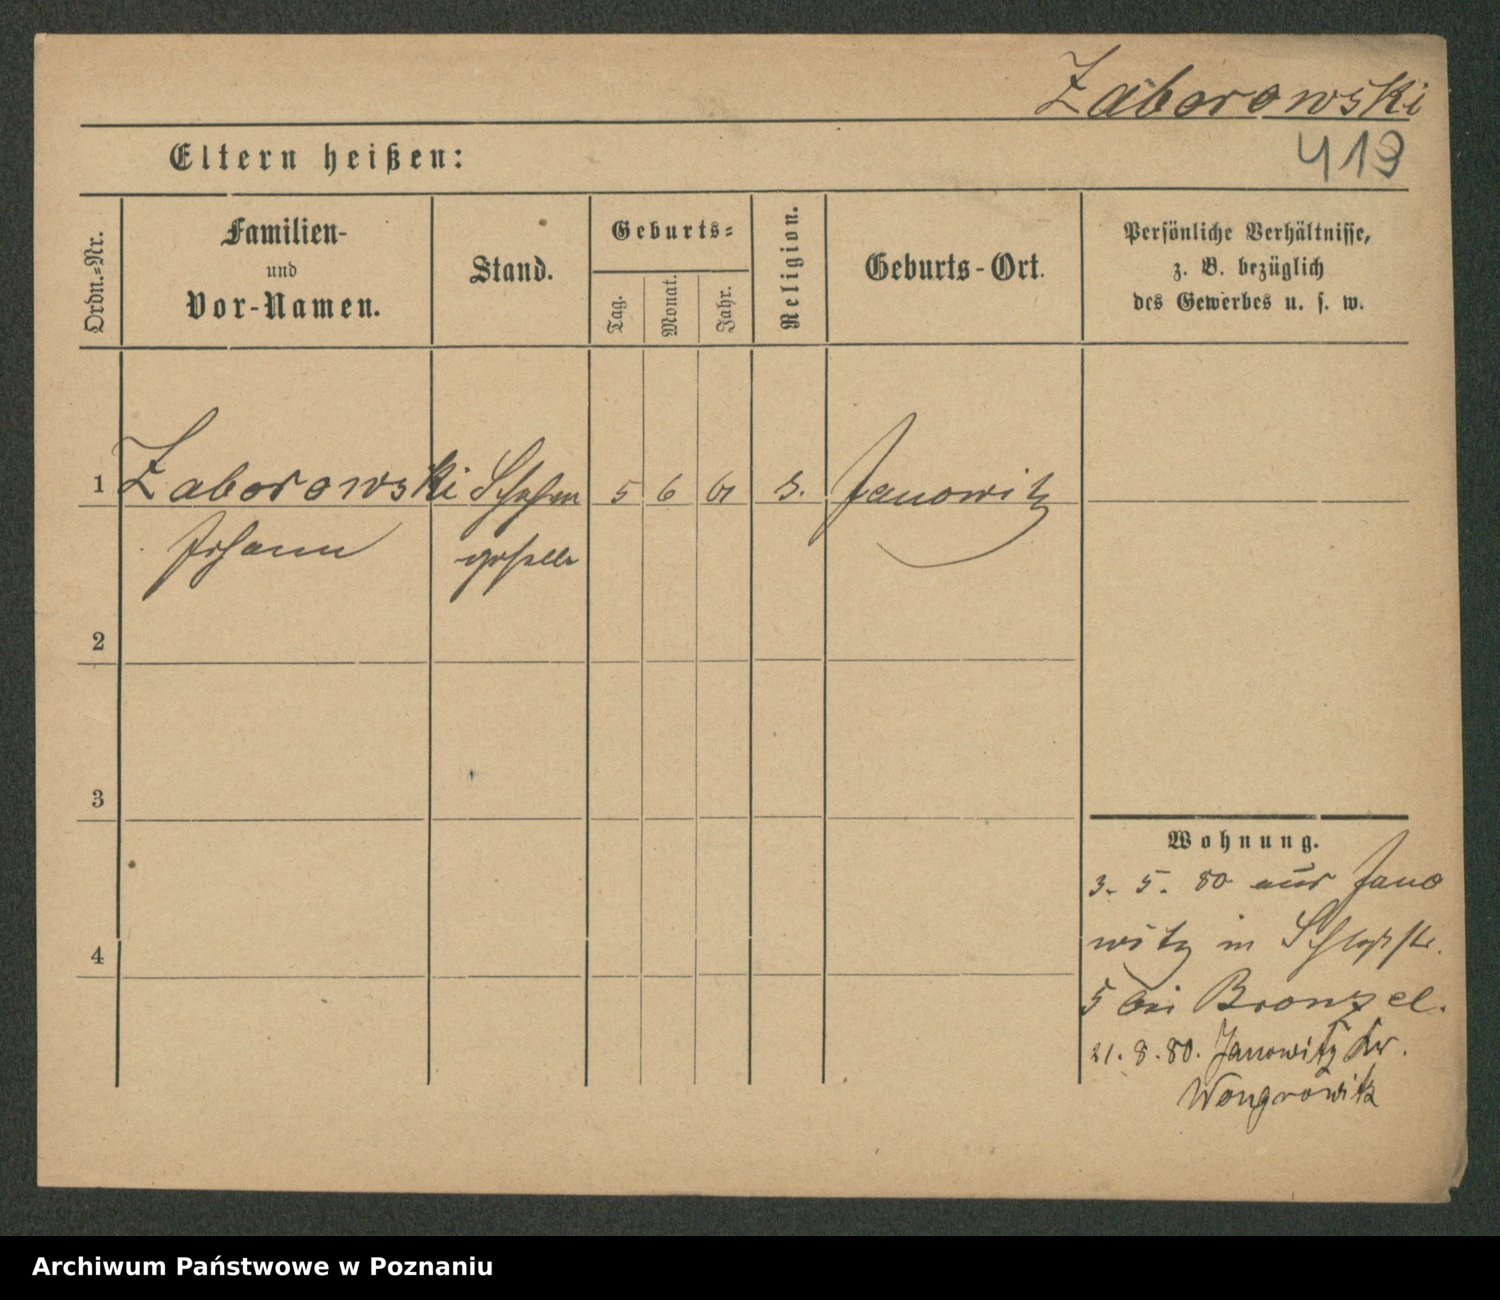 Zaborowski
419
Eltern heißen:
Ordn.=Nr.
Familien-
und
Vor-Namen.
Stand.
Geburts=
Tag.
Monat.
Jahr.
Religion.
Geburts-Ort.
Persönliche Verhältnisse,
z. B. bezüglich
des Gewerbes u. s. w.
1 Zaborowski 5 6 61 Janowitz
Johann geselle
2
3
4
Wohnung.
3. 5. 80 aus Jano
witz in Schloßstr.
5 bei Bronzel.
21. 8. 80. Janowitz Kr.
Wongrowitz
Archiwum Państwowe w Poznaniu